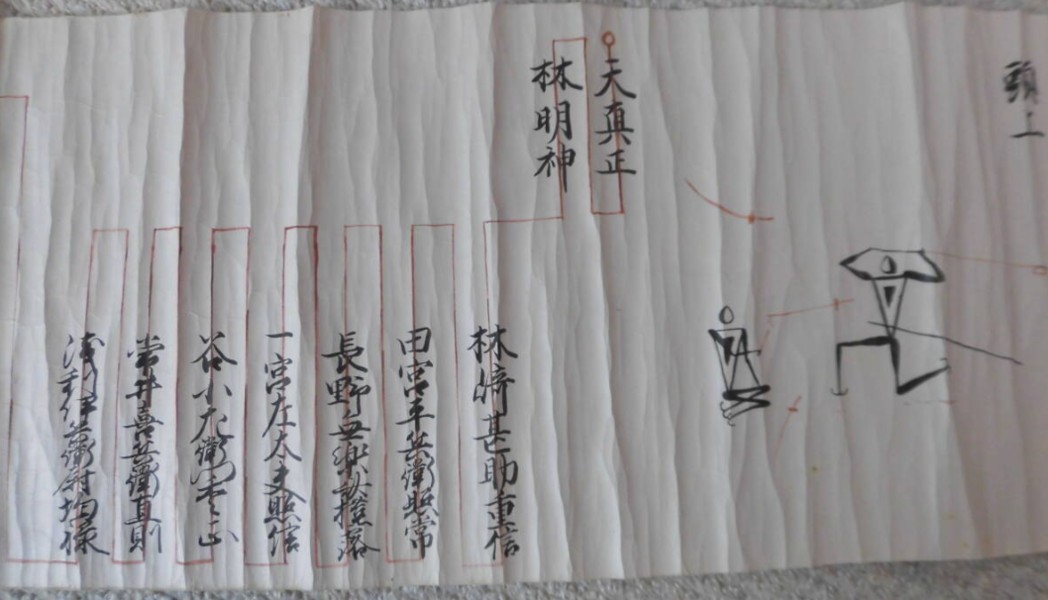 頭上
天真正
林明神
林崎甚助重信
田宮平兵衛照常
長野無楽斎槿露
一宮左太夫照信
谷小左衛門季正
常井喜兵衛直則
浅利伊兵衛尉均禄